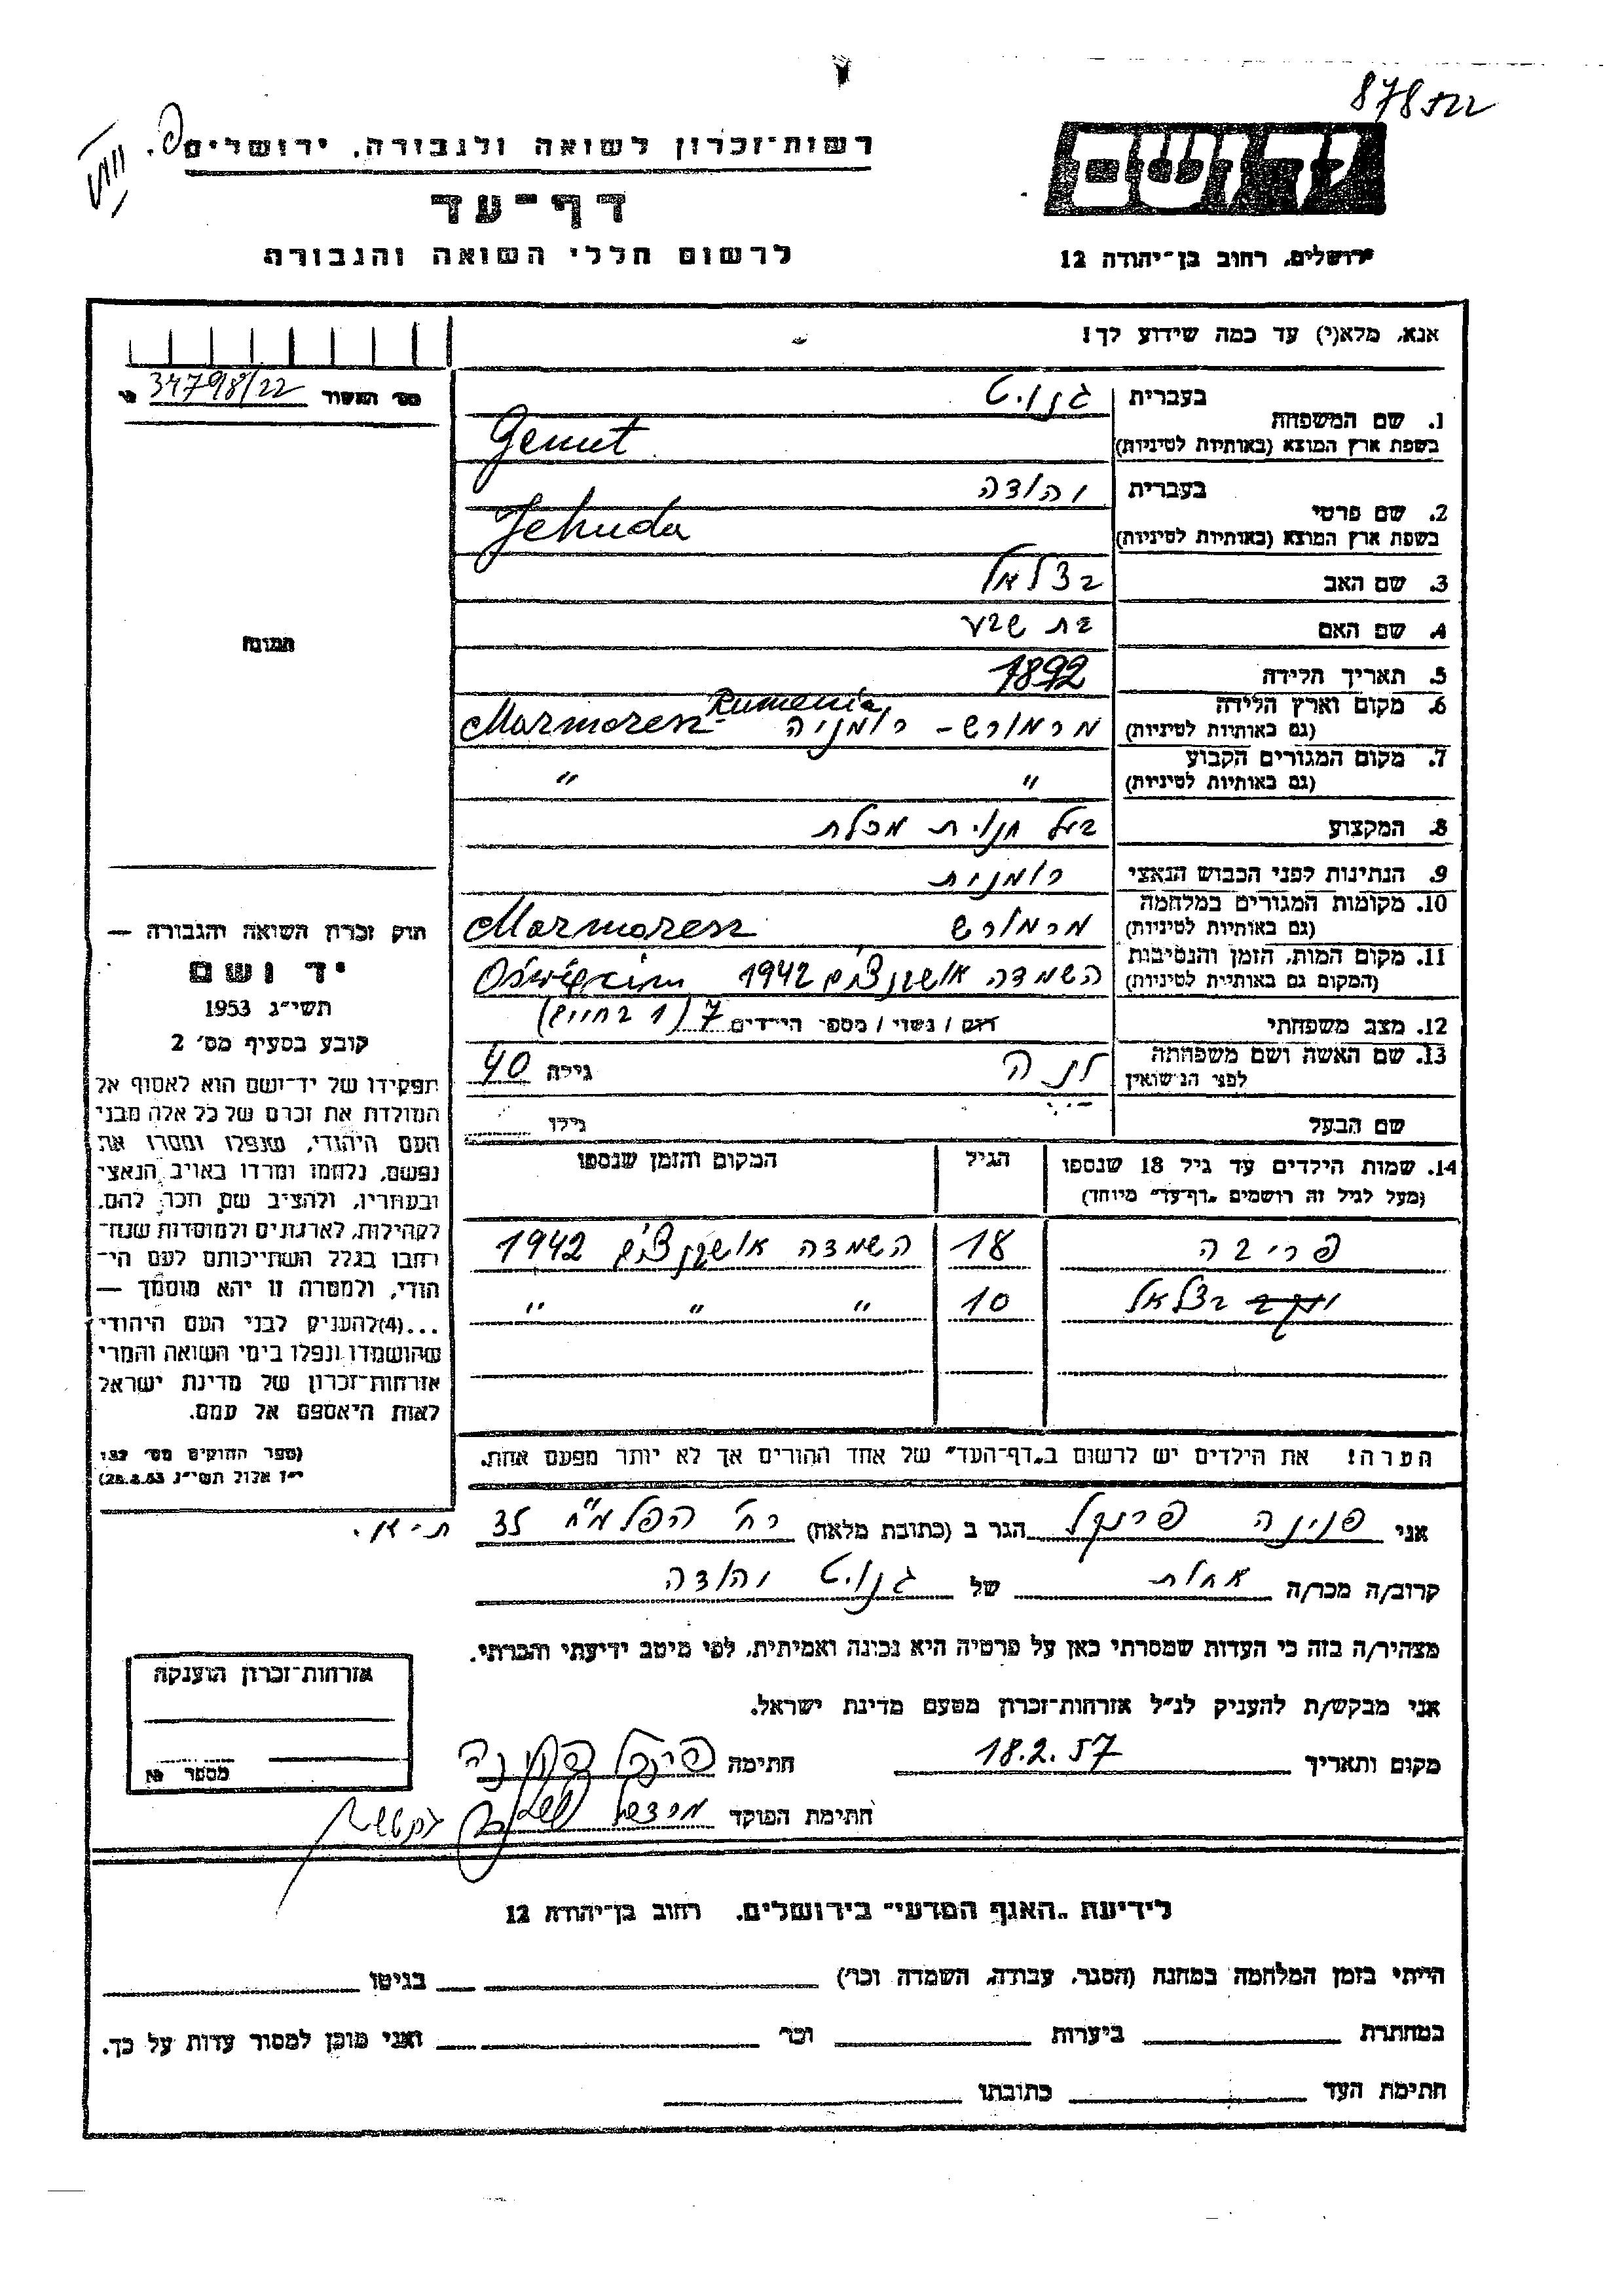 878
רשות־זכרון לשואה ולגבורה, ירושלים
דף־עד
לרשום חללי השואה והגבורה
יד ושם
ירושלים, רחוב בן־יהודה 12
אנא, מלא(י) עד כמה שידוע לך!
מס' האשור 34798/22
1. שם המשפחה
בעברית גנוט
בשפת ארץ המוצא (באותיות לטיניות) Genut
2. שם פרטי
בעברית יהודה
בשפת ארץ המוצא (באותיות לטיניות) Jehuda
3. שם האב בצלאל
4. שם האם בת שבע
5. תאריך הלידה 1892
6. מקום וארץ הלידה
(גם באותיות לטיניות) מרמורש - רומניה Marmoresz Rumenia
7. מקום המגורים הקבוע
(גם באותיות לטיניות) " "
8. המקצוע בעל חנוית מכלת
9. הנתינות לפני הכבוש הנאצי רומנית
10. מקומות המגורים במלחמה
(גם באותיות לטיניות) מרמורש Marmoresz
11. מקום המות, הזמן והנסיבות
(המקום גם באותיות לטיניות) השמדה אושוונצ'ים 1942 Oświęcim
12. מצב משפחתי רווק / נשוי / מספר הילדים 7 (1 בחיים)
13. שם האשה ושם משפחתה
לפני הנישואין לנה גילה 40
שם הבעל גילו
14. שמות הילדים עד גיל 18 שנספו
(מעל לגיל זה רושמים "דף־עד" מיוחד)
הגיל
המקום והזמן שנספו
פריבה 18 השמדה אושוונצ'ים 1942
בצלאל 10 " " "
הערה! את הילדים יש לרשום ב"דף־העד" של אחד ההורים אך לא יותר מפעם אחת.
התמונה
חוק זכרון השואה והגבורה —
יד ושם
תשי"ג 1953
קובע בסעיף מס' 2
תפקידו של יד־ושם הוא לאסוף אל
המולדת את זכרם של כל אלה מבני
העם היהודי, שנפלו ומסרו את
נפשם, נלחמו ומרדו באויב הנאצי
ובעוזריו, ולהציב שם וזכר להם,
לקהילות, לארגונים ולמוסדות שנח־
רבו בגלל השתייכותם לעם הי־
הודי, ולמטרה זו יהא מוסמך —
...(4) להעניק לבני העם היהודי
שהושמדו ונפלו בימי השואה והמרי
אזרחות־זכרון של מדינת ישראל
לאות היאספם אל עמם.
(ספר החוקים מס' 132
י"ז אלול תשי"ג 28.8.53)
אני פנינה פרנקל הגר ב (כתובת מלאה) רח' הפלמ"ח 35 ת-א.
קרוב/ה מכר/ה אחות של גנוט יהודה
מצהיר/ה בזה כי העדות שמסרתי כאן על פרטיה היא נכונה ואמיתית, לפי מיטב ידיעתי והכרתי.
אני מבקש/ת להעניק לנ"ל אזרחות־זכרון מטעם מדינת ישראל.
מקום ותאריך 18.2.57 חתימה פרנקל פנינה
חתימת הפוקד
אזרחות־זכרון הוענקה
מספר
לידיעת "האגף המדעי" בירושלים. רחוב בן־יהודה 12
הייתי בזמן המלחמה במחנה (הסגר, עבודה, השמדה וכו') בגיטו
במחתרת ביערות וכו' ואני מוכן למסור עדות על כך.
חתימת העד כתובתו